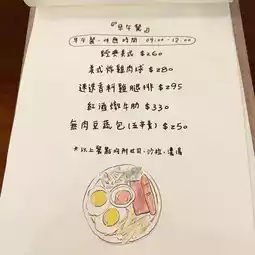 『早午餐』
早午餐・供應時間 09:00-12:00
經典美式 $260
美式炸雞肉球 $280
迷迭香料雞腿排 $295
紅酒燉牛肋 $330
無肉豆蔬包(五辛素) $250
*以上餐點均附吐司、沙拉、濃湯